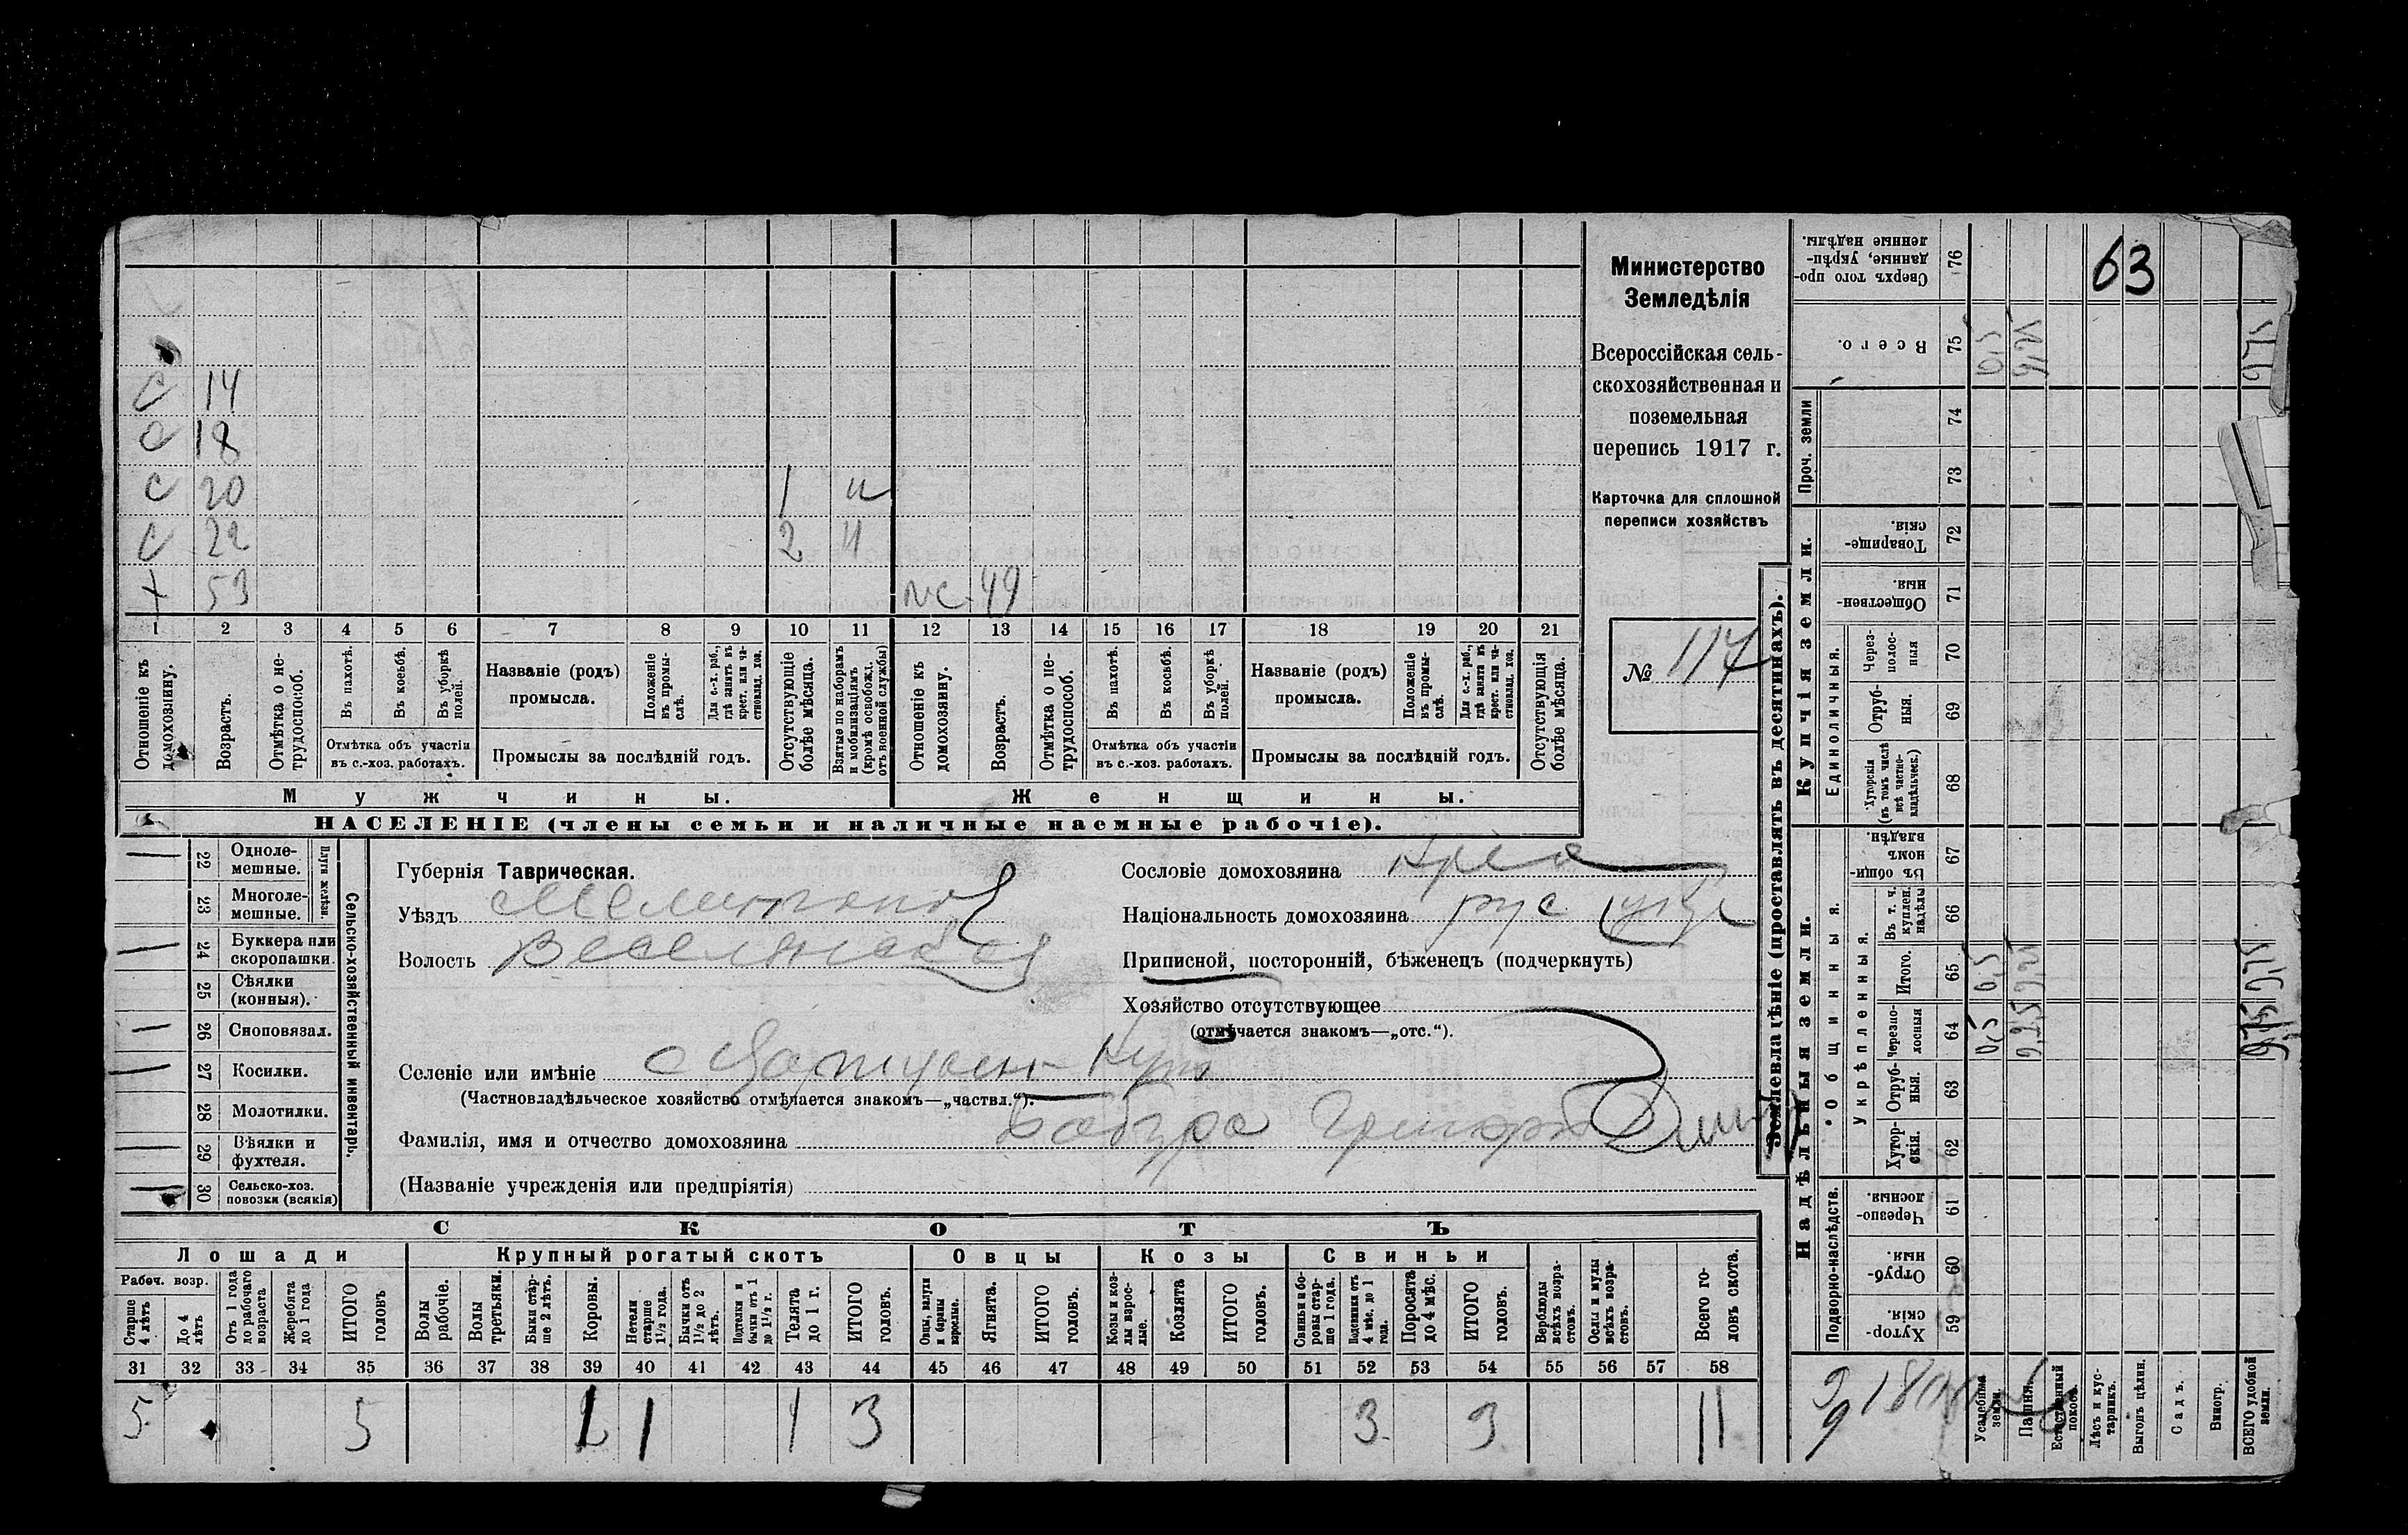 С 14
С 18
С 20 1 и
С 22 2 и
Х 53 жс. 49
1 2 3 4 5 6 7 8 9 10 11 12 13 14 15 16 17 18 19 20 21
Отношеніе къ домохозяину.
Возрастъ.
Отмѣтка о нетрудоспособ.
Въ пахотѣ.
Въ косьбѣ.
Въ уборкѣ полей.
Отмѣтка объ участіи въ с.-хоз. работахъ.
Названіе (родъ) промысла.
Положеніе въ промыслѣ.
Для с.-х. раб., гдѣ занятъ въ крест. или частновлад. хоз.
Промыслы за послѣдній годъ.
Отсутствующіе болѣе мѣсяца.
Взятые по наборамъ и мобилизаціямъ (кромѣ освобожд. отъ военной службы)
Отношеніе къ домохозяину.
Возрастъ.
Отмѣтка о нетрудоспособ.
Въ пахотѣ.
Въ косьбѣ.
Въ уборкѣ полей.
Отмѣтка объ участіи въ с.-хоз. работахъ.
Названіе (родъ) промысла.
Положеніе въ промыслѣ.
Для с.-х. раб., гдѣ занятъ въ крест. или частновлад. хоз.
Промыслы за послѣдній годъ.
Отсутствующія болѣе мѣсяца.
Мужчины. Женщины.
НАСЕЛЕНІЕ (члены семьи и наличные наемные рабочіе).
Министерство
Земледѣлія
Всероссійская сель-
скохозяйственная и
поземельная
перепись 1917 г.
Карточка для сплошной
переписи хозяйствъ
№ 114
22 Однолемешные.
23 Многолемешные.
Плуги желѣзн.
24 Буккера или скоропашки.
25 Сѣялки (конныя).
26 Сноповязал.
27 Косилки.
28 Молотилки.
29 Вѣялки и фухтеля.
30 Сельско-хоз. повозки (всякія)
Сельско-хозяйственный инвентарь.
Губернія Таврическая.
Уѣздъ Мелитопол
Волость Веселянская
Селеніе или имѣніе
(Частновладѣльческое хозяйство отмѣчается знакомъ—„частвл.“).
Фамилія, имя и отчество домохозяина Бабура Григорій Дми
(Названіе учрежденія или предпріятія)
Сословіе домохозяина Крес
Національность домохозяина рус (укр)
Приписной, посторонній, бѣженецъ (подчеркнуть)
Хозяйство отсутствующее
(отмѣчается знакомъ—„отс.“).
СКОТЪ
Лошади Крупный рогатый скотъ Овцы Козы Свиньи
Рабоч. возр.
Старше 4 лѣтъ
До 4 лѣтъ
Отъ 1 года до рабочаго возраста
Жеребята до 1 года
ИТОГО головъ
Волы рабочіе.
Волы третьяки.
Быки старше 2 лѣтъ.
Коровы.
Нетели старше 1½ года.
Бычки отъ 1½ до 2 лѣтъ.
Подтелки и бычки отъ 1 до 1½ г.
Телята до 1 г.
ИТОГО головъ.
Овцы, валухи и бараны взрослые.
Ягнята.
ИТОГО головъ.
Козы и козлы взрослые.
Козлята
ИТОГО головъ.
Свиньи и боровы старше 1 года.
Подсвинки отъ 4 мѣс. до 1 года.
Поросята до 4 мѣс.
ИТОГО головъ.
Верблюды всѣхъ возрастовъ.
Ослы и мулы всѣхъ возрастовъ.
Всего головъ скота.
31 32 33 34 35 36 37 38 39 40 41 42 43 44 45 46 47 48 49 50 51 52 53 54 55 56 57 58
5 5 1 1 1 3 3 3 11
Землевладѣніе (проставлять въ десятинахъ).
Купчія земли.
Надѣльныя земли.
76 Сверхъ того проданные, укрѣпленные надѣлы.
63
75 Всего. 0,5 9,25 9,75
Проч. земли
74
73
72 Товарищескія.
71 Общественныя.
Единоличныя.
70 Черезполосныя
69 Отрубныя.
68 Хуторскія (въ томъ числѣ всѣ частновладѣльческ.)
Общинныя.
67 Въ общинномъ владѣн.
Укрѣпленныя.
66 Въ т. ч. куплен. надѣлы
65 Итого. 0,5 9,25 9,75
64 Черезполосныя 0,5 9,25 9,75
63 Отрубныя.
62 Хуторскія.
Подворно-наслѣдств.
61 Черезполосныя.
60 Отрубныя.
59 Хуторскія
Усадебныя земли.
Пашня.
Естественный покосъ.
Лѣсъ и кустарникъ.
Выгонъ цѣлин.
Садъ.
Виногр.
ВСЕГО удобной земли.